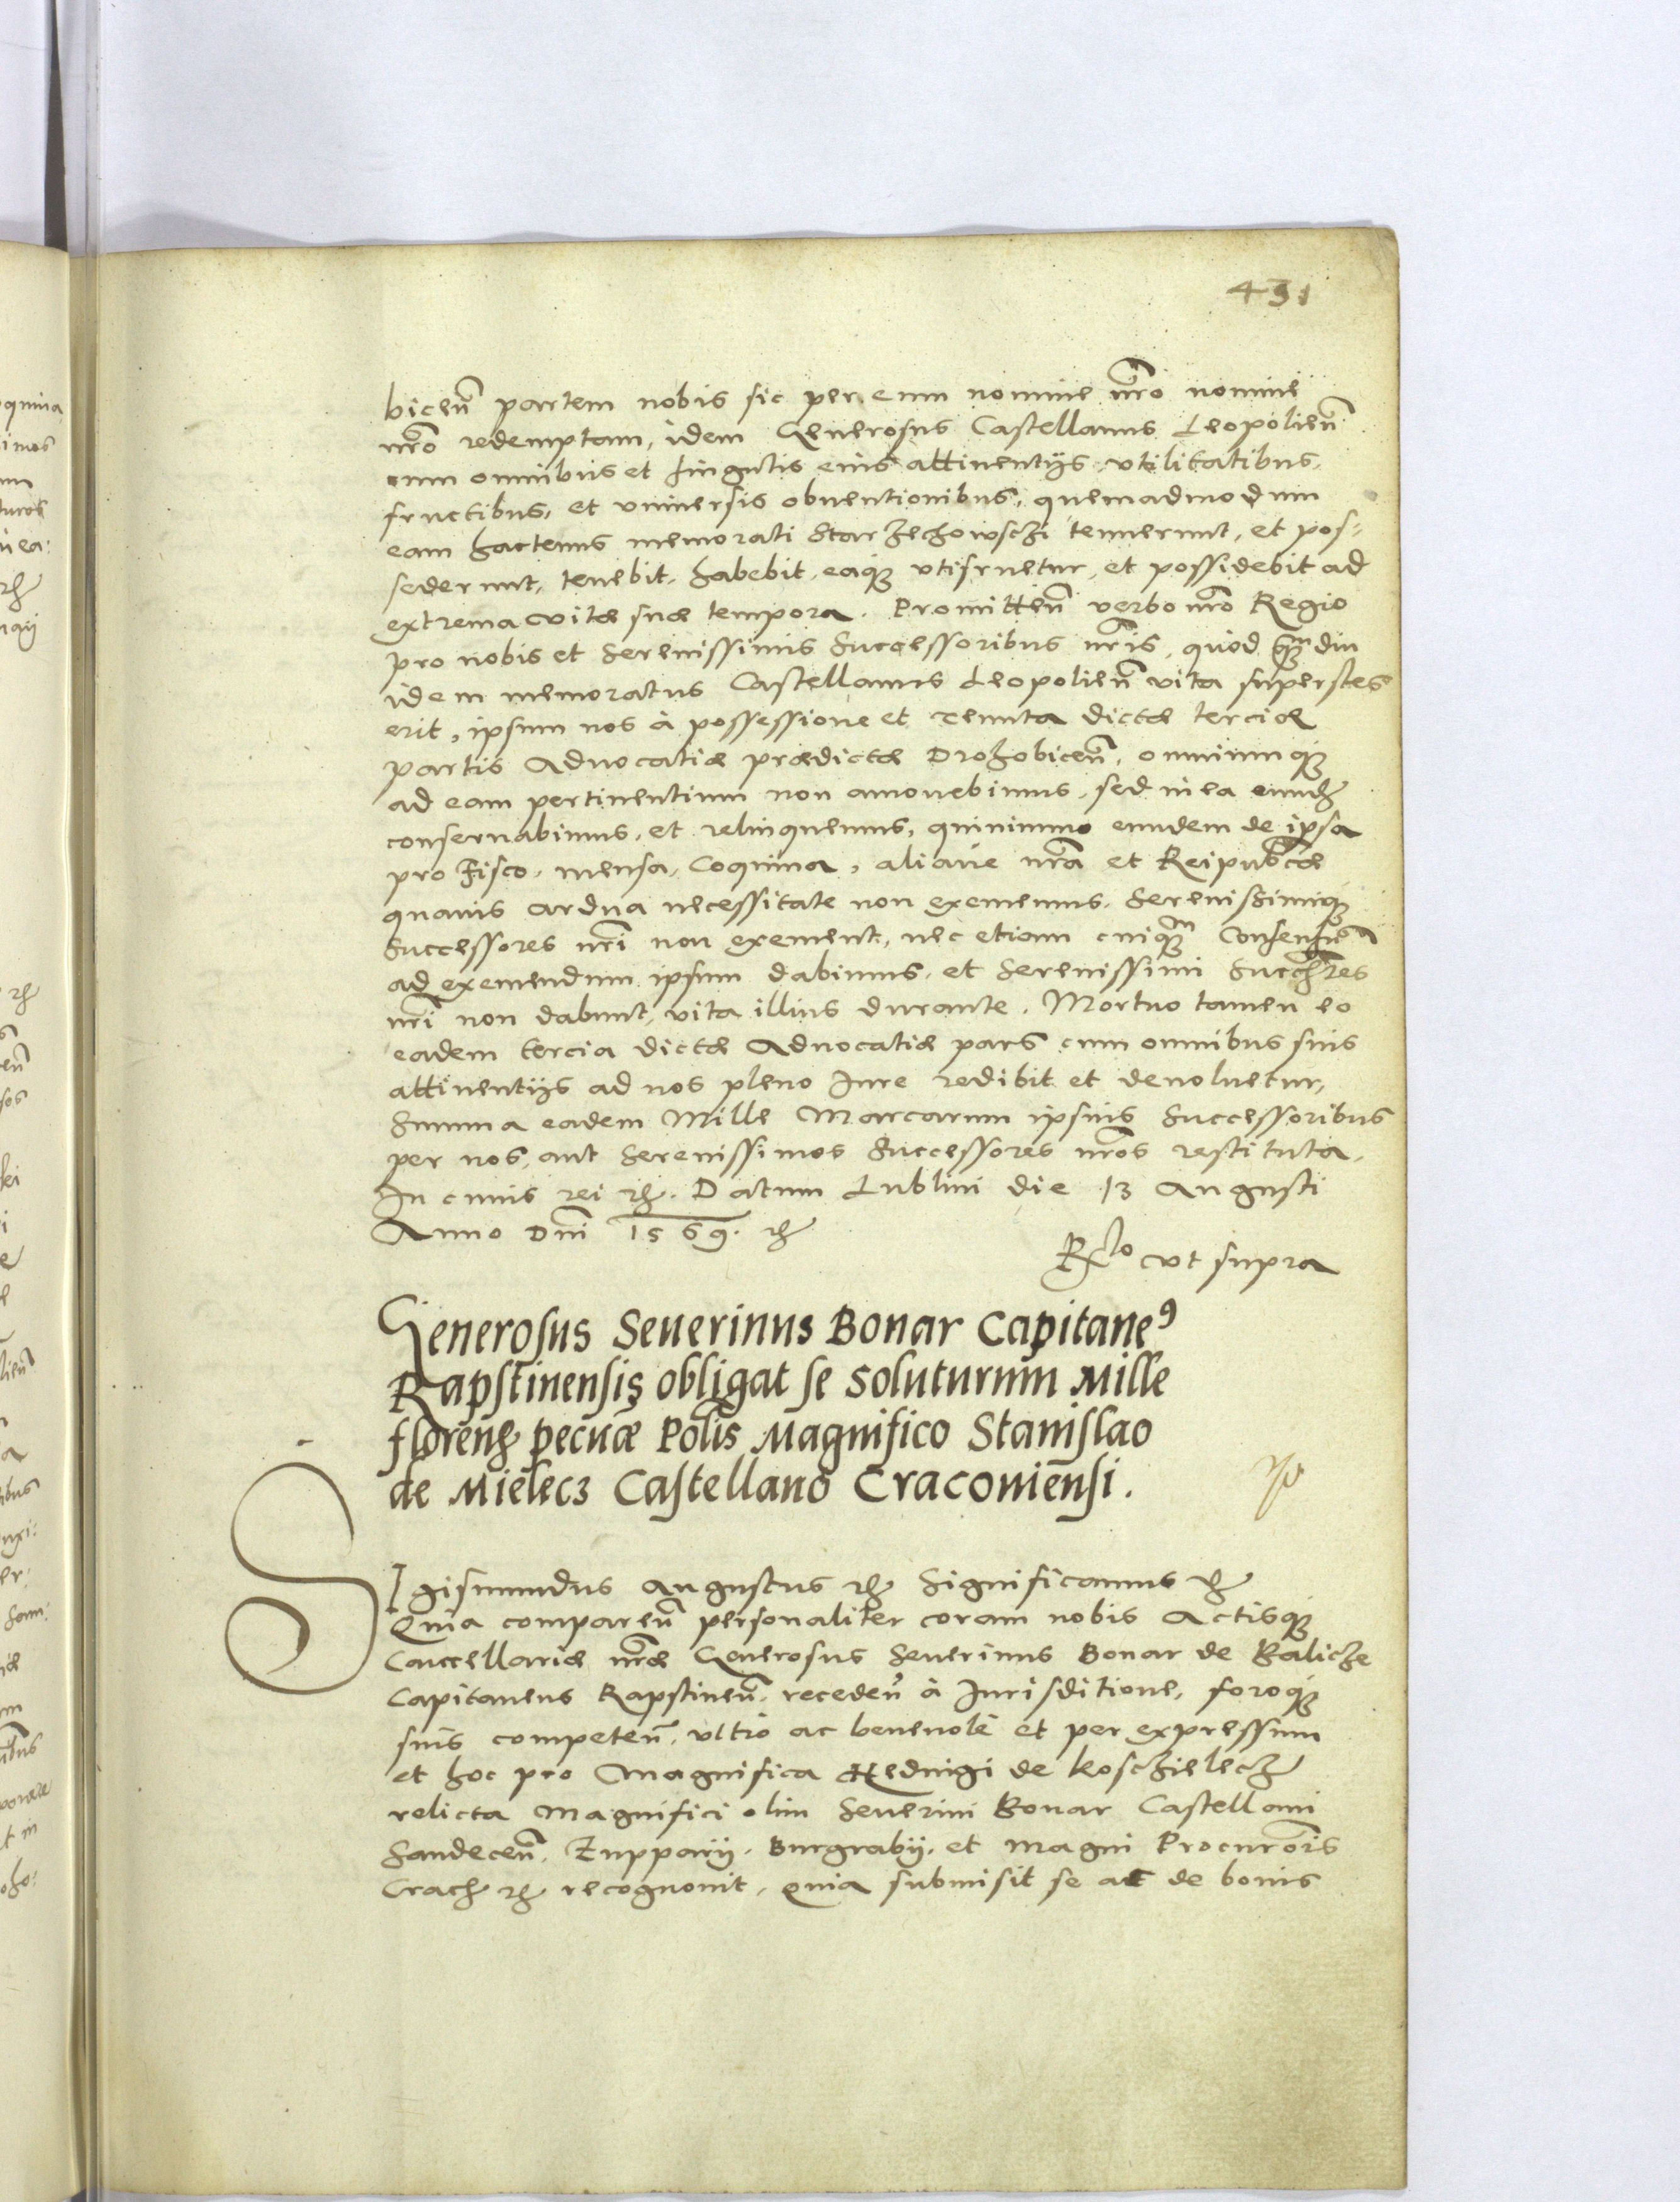 431
bicen̄ partem nobis sic per eum nomine nr̄o nomine
nr̄o redemptam, idem Generosus Castellanus Leopolien̄
cum omnibus et singulis eius attinentijs, vtilitatibus,
fructibus, et vniuersis obuentionibus, quemadmodum
eam hactenus memorati Starzechowschi tenuerunt, et pos-
sederunt, tenebit, habebit, eaq3 vtifruetur, et possidebit ad
extrema vitæ suæ tempora. Promitten̄ verbo nr̄o Regio
pro nobis et Serenissimis Successoribus nr̄is, quod qm̄ diu
idem memoratus Castellanus Leopolien̄ vita superstes
erit, ipsum nos à possessione et tenuta dictæ terciæ
partis Aduocatiæ prædictæ Drohobicen̄, omniumq3
ad eam pertinentium non amouebimus, sed in ea eund̄
conseruabimus, et relinquemus, quinimmo eundem de ipsa
pro Fisco, mensa, Coquina, aliaue nr̄a et Reipub̄cæ
quauis ardua necessitate non exememus, Serenissimiq3
Successores nr̄i non exement, nec etiam cuiq3m Consensum
ad exemendum ipsum dabimus, et Serenissimi Succh̄res
nr̄i non dabunt, vita illius durante. Mortuo tamen eo
eadem tercia dictæ Aduocatiæ pars cum omnibus suis
attinentijs ad nos pleno Iure redibit et deuoluetur,
Summa eadem Mille Marcarum ipsius Successoribus
per nos, aut Serenissimos Successores nr̄os restituta.
In cuius rei &c. Datum Lublini die 13 Augusti
Anno Dn̄i 1569. &c
R̄lo vt supra
Generosus Seuerinus Bonar Capitane9
Rapstinensis obligat se soluturum Mille
floren̄ pecuæ Pol̄is Magnifico Stanislao
de Mielecz Castellano Cracouiensi.
SIgismundus Augustus &c Significamus &c
Quia comparen̄ personaliter coram nobis Actisq3
Cancellariæ nr̄æ Generosus Seuerinus Bonar de Balicze
Capitaneus Rapstinen̄, receden̄ à Iurisditione, foroq3
suis competen̄, vltro ac beneuolè et per expressum
et hoc pro Magnifica Hedwigi de Koschielecz
relicta Magnifici olim Seuerini Bonar Castellani
Sandecen̄, Zupparij, Burgrabij, et Magni Procurōris
Crac̄ &c recognouit, Quia submisit se ac de bonis